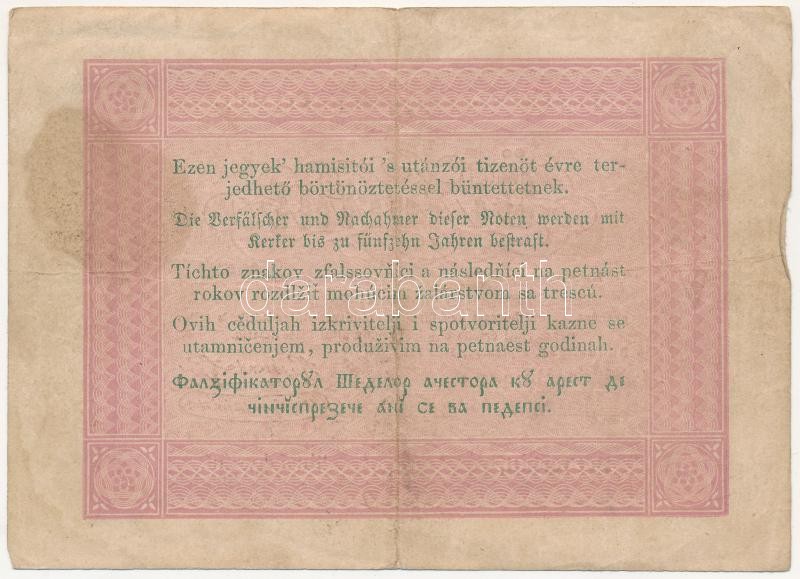 Ezen jegyek' hamisitói 's utánzói tizenöt évre ter-
jedhető börtönöztetéssel büntettetnek.
Die Verfälscher und Nachahmer dieser Noten werden mit
Kerker bis zu fünfzehn Jahren bestraft.
Tíchto znakov zfalssovňíci a následňíci na petnást
rokov rozdlžiť mohúcim žalárstvom sa trescú.
Ovih cěduljah izkrivitelji i spotvoritelji kazne se
utamničenjem, produživim na petnaest godinah.
Фалꙃіфікаторꙋл Шеделор ачестора кꙋ арест де
чінчіспреꙃече ані се ва педепсі.
darabanth